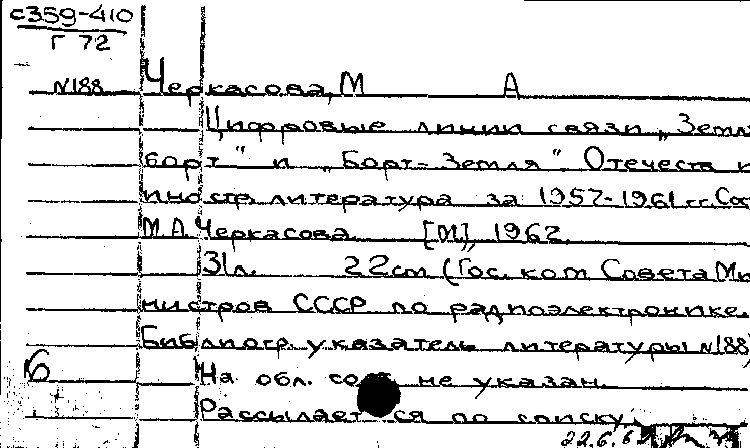 с359-410
Г 72
N188
Черкасова, М А
Цифровые линии связи „Земля
борт" и „Борт-Земля". Отечеств и
иностр. литература за 1957-1961 гг. Сос
М.А. Черкасова [М], 1962
31 л. 22 см (Гос. ком Совета Ми
нистров СССР по радиоэлектронике.
Библиогр. указатель литературы N188)
б На обл. сост не указан.
Рассылается по списку.
22.6.6